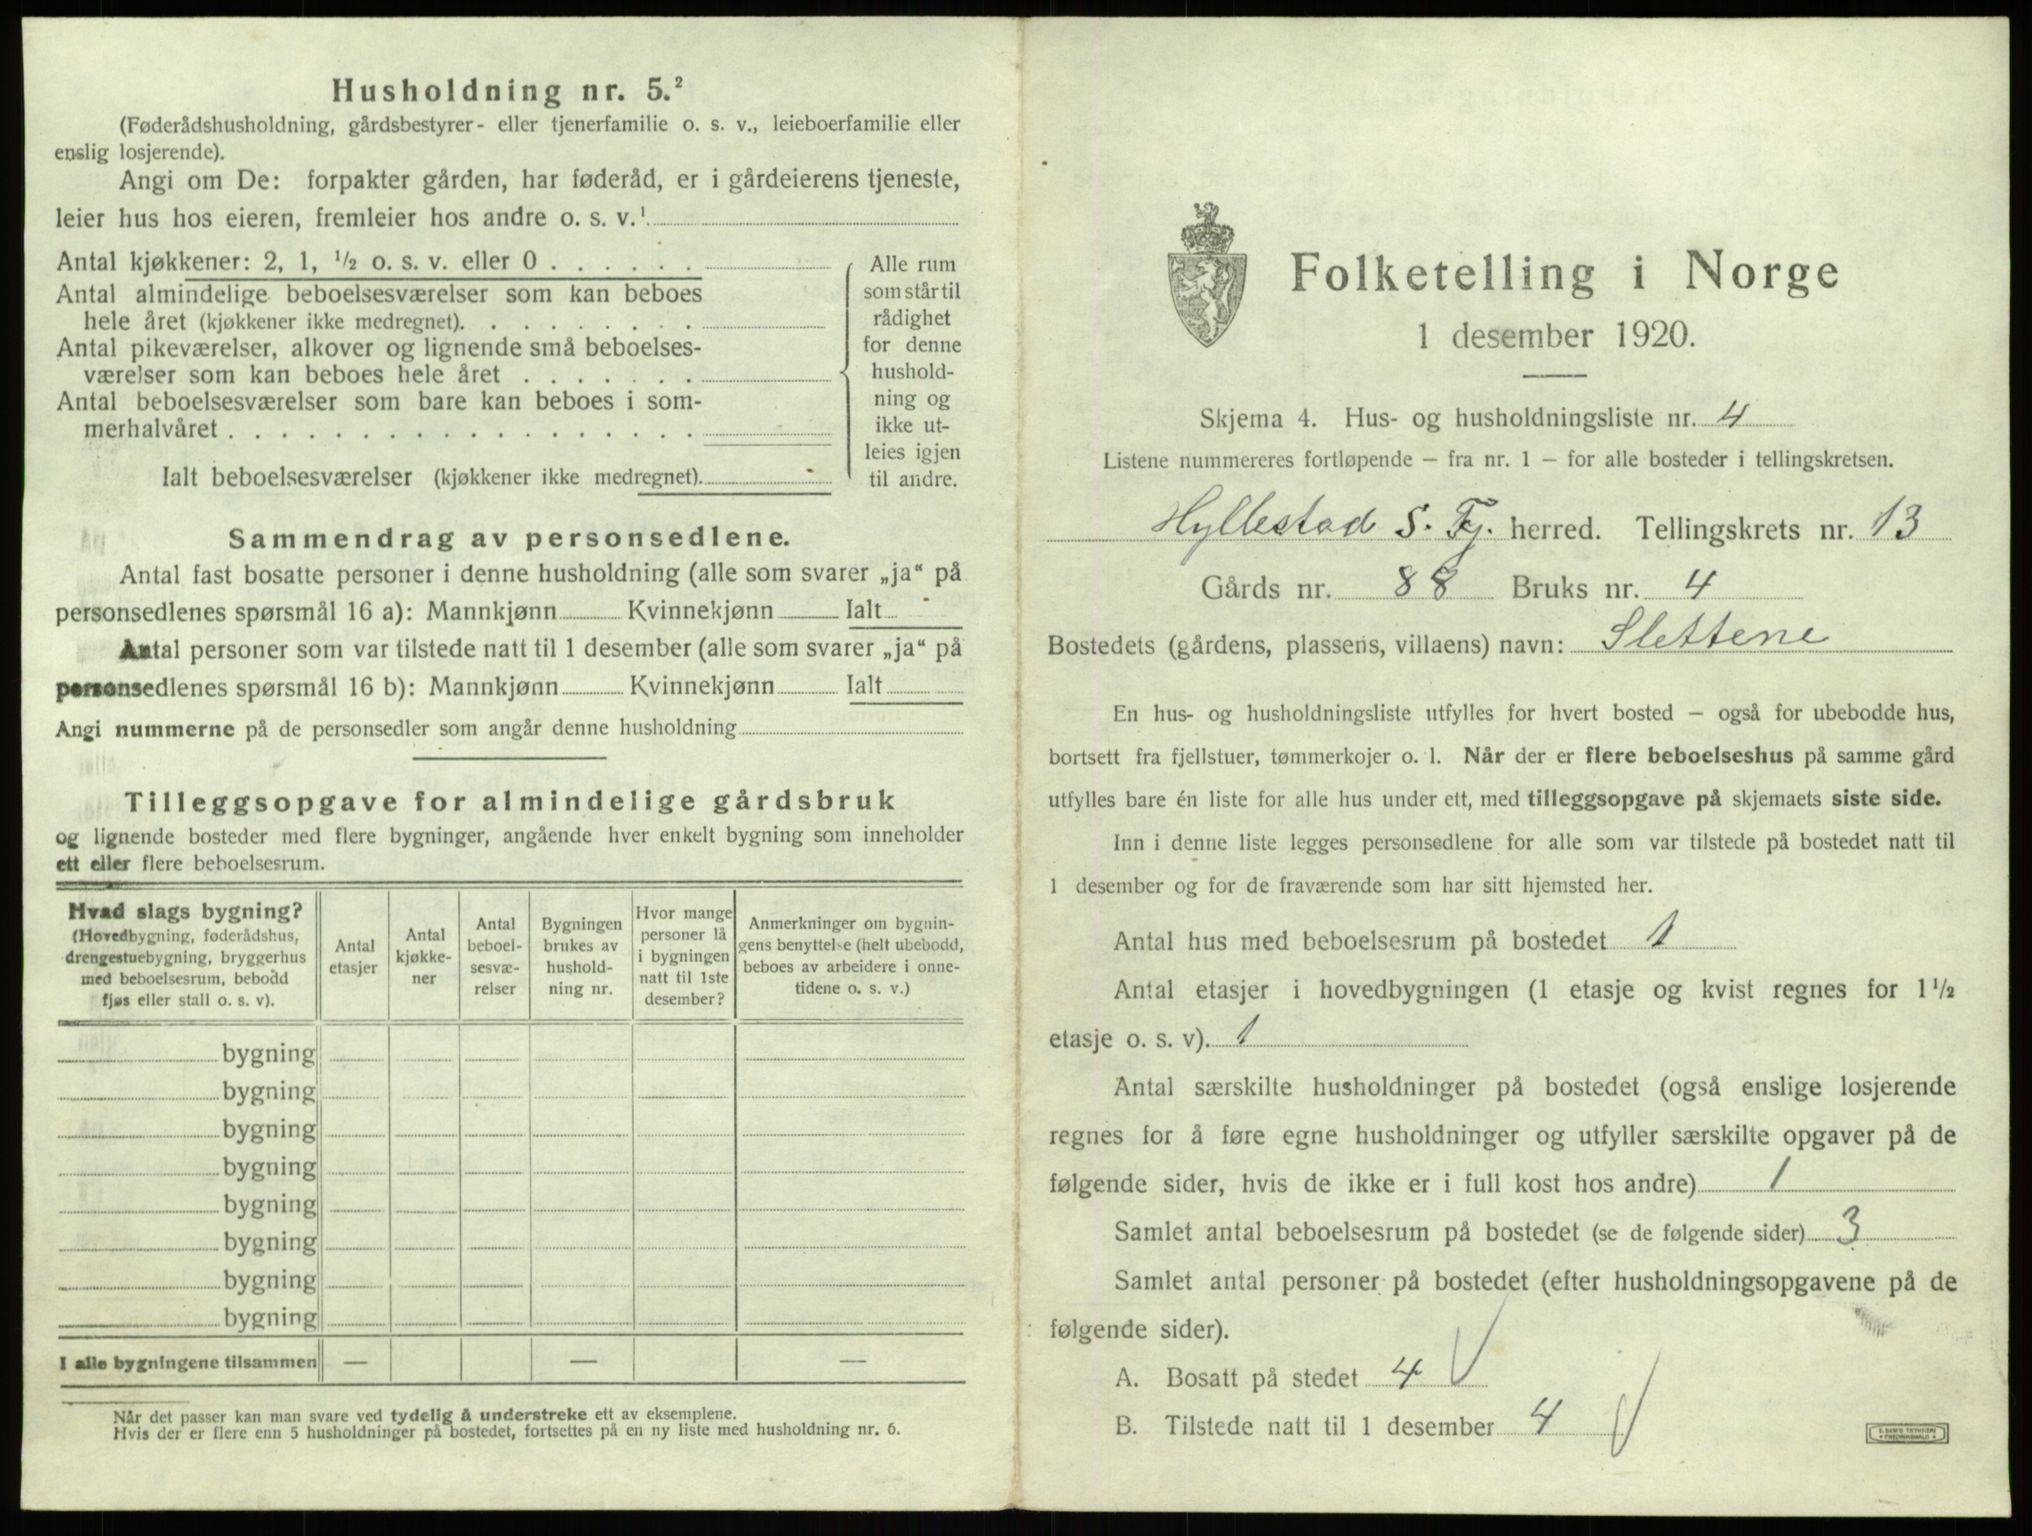 Husholdning nr. 5.²
(Føderådshusholdning, gårdsbestyrer- eller tjenerfamilie o. s. v., leieboerfamilie eller
enslig losjerende).
Angi om De: forpakter gården, har føderåd, er i gårdeierens tjeneste,
leier hus hos eieren, fremleier hos andre o. s. v.¹
Antal kjøkkener: 2, 1, ½ o. s. v. eller 0 . . . . . .
Antal almindelige beboelsesværelser som kan beboes
hele året (kjøkkener ikke medregnet). . . . . . . . .
Antal pikeværelser, alkover og lignende små beboelses-
værelser som kan beboes hele året . . . . . . .
Antal beboelsesværelser som bare kan beboes i som-
merhalvåret . . . . . . . . . . . . . . . . . .
Ialt beboelsesværelser (kjøkkener ikke medregnet).
Alle rum
som står til
rådighet
for denne
hushold-
ning og
ikke ut-
leies igjen
til andre.
Sammendrag av personsedlene.
Antal fast bosatte personer i denne husholdning (alle som svarer „ja“ på
personsedlenes spørsmål 16 a): Mannkjønn Kvinnekjønn Ialt
Antal personer som var tilstede natt til 1 desember (alle som svarer „ja“ på
personsedlenes spørsmål 16 b): Mannkjønn Kvinnekjønn Ialt
Angi nummerne på de personsedler som angår denne husholdning
Tilleggsopgave for almindelige gårdsbruk
og lignende bosteder med flere bygninger, angående hver enkelt bygning som inneholder
ett eller flere beboelsesrum.
Hvad slags bygning?
(Hovedbygning, føderådshus,
drengestuebygning, bryggerhus
med beboelsesrum, bebodd
fjøs eller stall o. s. v).
Antal
etasjer
Antal
kjøkke-
ner
Antal
beboel-
sesvæ-
relser
Bygningen
brukes av
hushold-
ning nr.
Hvor mange
personer lå
i bygningen
natt til 1ste
desember?
Anmerkninger om bygnin-
gens benyttelse (helt ubebodd,
beboes av arbeidere i onne-
tidene o. s. v.)
bygning
bygning
bygning
bygning
bygning
bygning
bygning
bygning
I alle bygningene tilsammen — — —
Når det passer kan man svare ved tydelig å understreke ett av eksemplene.
Hvis der er flere enn 5 husholdninger på bostedet, fortsettes på en ny liste med husholdning nr. 6.
Folketelling i Norge
1 desember 1920.
Skjema 4. Hus- og husholdningsliste nr. 4
Listene nummereres fortløpende – fra nr. 1 – for alle bosteder i tellingskretsen.
Hyllestad S. Fj. herred. Tellingskrets nr. 13
Gårds nr. 88 Bruks nr. 4
Bostedets (gårdens, plassens, villaens) navn: Slettene
En hus- og husholdningsliste utfylles for hvert bosted – også for ubebodde hus,
bortsett fra fjellstuer, tømmerkojer o. l. Når der er flere beboelseshus på samme gård
utfylles bare én liste for alle hus under ett, med tilleggsopgave på skjemaets siste side.
Inn i denne liste legges personsedlene for alle som var tilstede på bostedet natt til
1 desember og for de fraværende som har sitt hjemsted her.
Antal hus med beboelsesrum på bostedet 1
Antal etasjer i hovedbygningen (1 etasje og kvist regnes for 1½
etasje o. s. v). 1
Antal særskilte husholdninger på bostedet (også enslige losjerende
regnes for å føre egne husholdninger og utfyller særskilte opgaver på de
følgende sider, hvis de ikke er i full kost hos andre) 1
Samlet antal beboelsesrum på bostedet (se de følgende sider) 3
Samlet antal personer på bostedet (efter husholdningsopgavene på de
følgende sider).
A. Bosatt på stedet 4
B. Tilstede natt til 1 desember 4